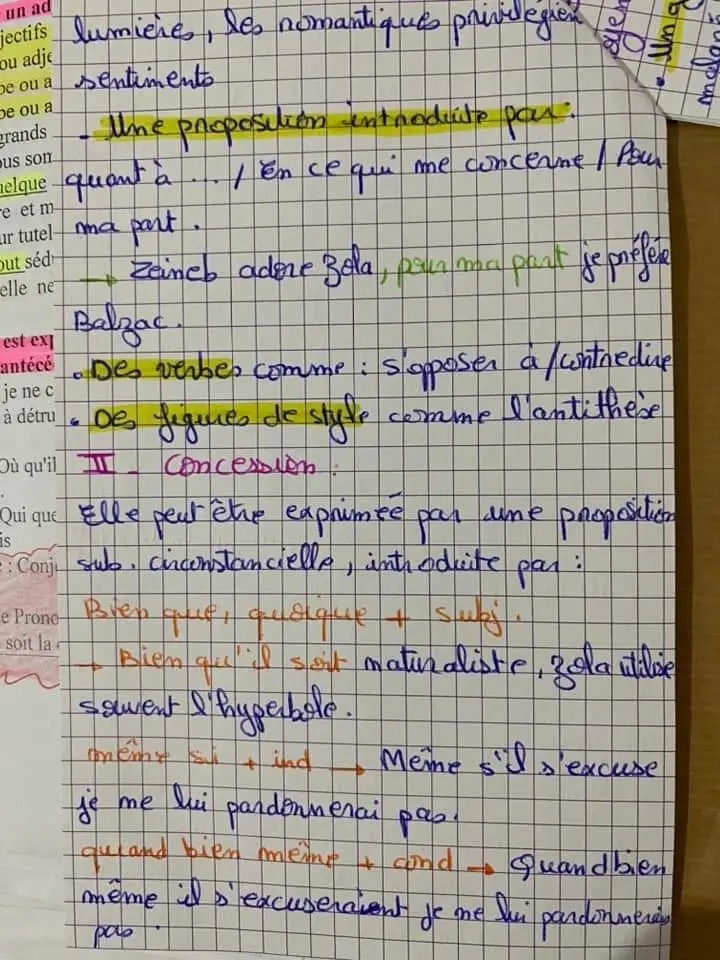 lumière, les romantiques privilégien
sentiments
- Une proposition introduite par:
quant à ... / En ce qui me concerne / Pour
ma part.
→ Zeineb adore Zola, pour ma part je préfère
Balzac.
• Des verbes comme : s'opposer à / contredire
• Des figures de style comme l'antithèse
II - Concession :
Elle peut être exprimée par une proposition
sub. circonstancielle, introduite par :
Bien que, quoique + subj.
→ Bien qu'il soit naturaliste, Zola utilise
souvent l'hyperbole.
même si + ind → Même s'il s'excuse
je ne lui pardonnerai pas.
quand bien même + cond → Quand bien
même il s'excuseraient je ne lui pardonnerais
pas.
un ad
jectifs
ou adje
pe ou a
pe ou a
grands
ous son
uelque
re et m
ur tutel
out séd
elle ne
est exp
antécé
je ne c
à détru
Où qu'il
Qui que
is
: Conj
e Prono
soit la
• Un q